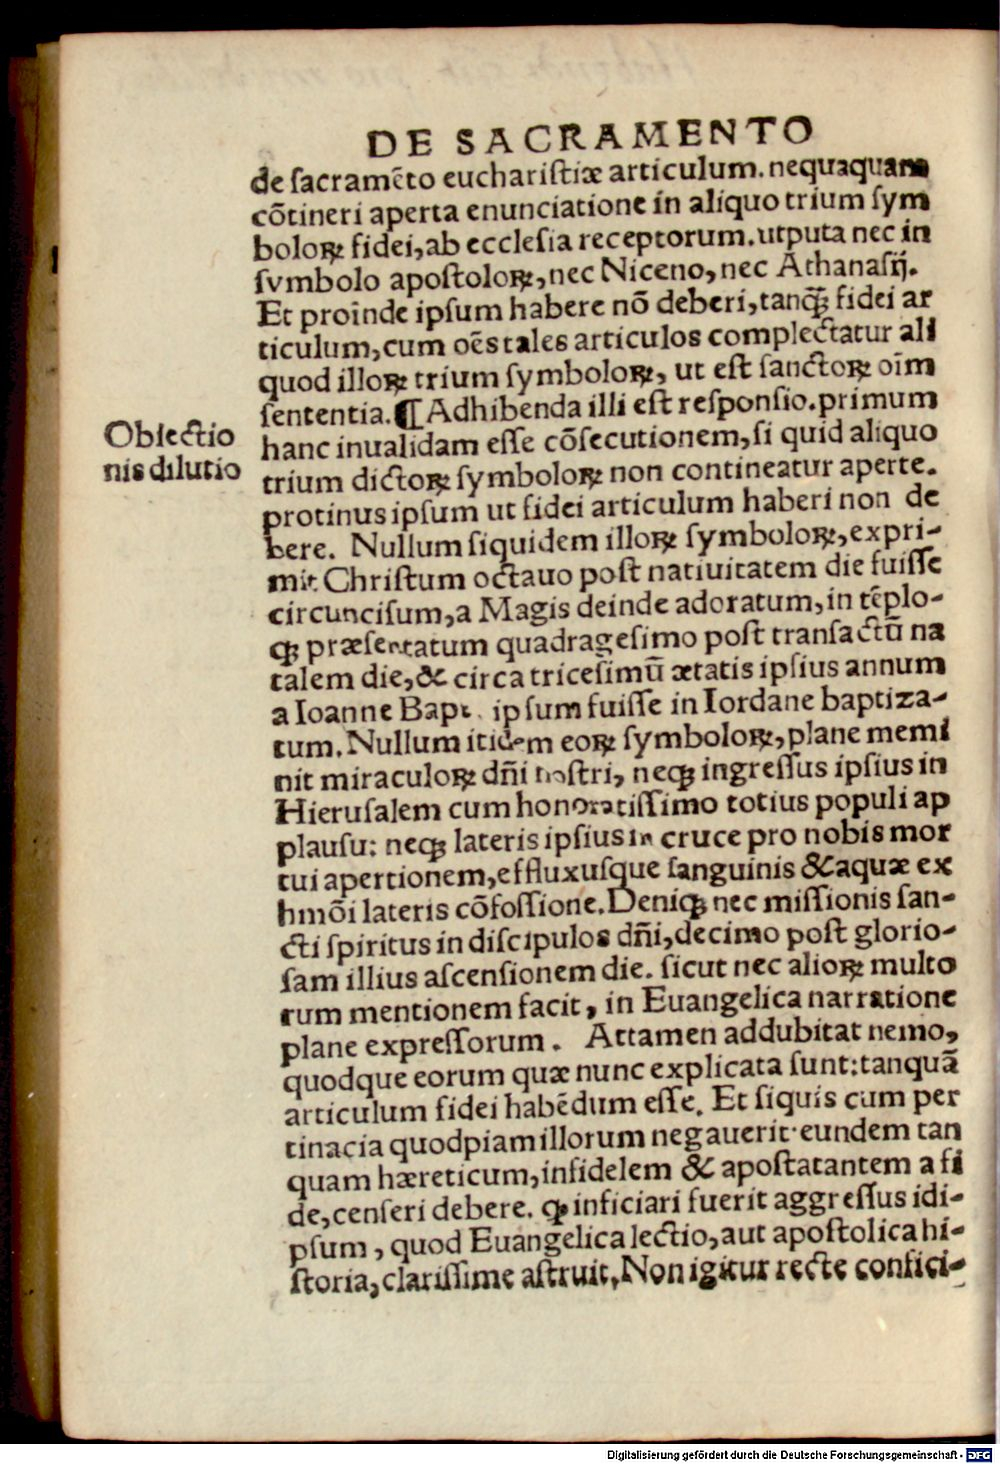 DE SACRAMENTO
de sacramēto euchariſtiæ articulum. nequaquam
cōtineri aperta enunciatione in aliquo trium ſym
boloꝝ fidei, ab eccleſia receptorum. utputa nec in
ſymbolo apoſtoloꝝ, nec Niceno, nec Athanaſij.
Et proinde ipſum habere nō deberi, tanꝗ̃ fidei ar
ticulum, cum oēs tales articulos complectatur ali
quod illoꝝ trium ſymboloꝝ, ut eſt ſanctoꝝ oīm
ſententia. ¶ Adhibenda illi eſt reſponſio. primum
Obiectio
nis dilutio
hanc inualidam eſſe cōſecutionem, ſi quid aliquo
trium dictoꝝ ſymboloꝝ non contineatur aperte.
protinus ipſum ut fidei articulum haberi non de
bere. Nullum ſiquidem illoꝝ ſymboloꝝ, expri-
mit Chriſtum octauo poſt natiuitatem die fuiſſe
circunciſum, a Magis deinde adoratum, in tēplo-
ꝗ præſentatum quadrageſimo poſt tranſactū na
talem die, & circa triceſimū ætatis ipſius annum
a Ioanne Bapt. ipſum fuiſſe in Iordane baptiza-
tum. Nullum itidem eoꝝ ſymboloꝝ, plane memi
nit miraculoꝝ dñi noſtri, neꝗ ingreſſus ipſius in
Hieruſalem cum honoratiſſimo totius populi ap
plauſu: neꝗ lateris ipſius in cruce pro nobis mor
tui apertionem, effluxuſque ſanguinis & aquæ ex
hmōi lateris cōfoſſione. Deniꝗ nec miſſionis ſan-
cti ſpiritus in diſcipulos dñi, decimo poſt glorio-
ſam illius aſcenſionem die. ſicut nec alioꝝ multo
rum mentionem facit, in Euangelica narratione
plane expreſſorum. Attamen addubitat nemo,
quodque eorum quæ nunc explicata ſunt: tanquā
articulum fidei habēdum eſſe. Et ſiquis cum per
tinacia quodpiam illorum negauerit· eundem tan
quam hæreticum, infidelem & apoſtatantem a fi
de, cenſeri debere. ꝙ inficiari fuerit aggreſſus idi-
pſum, quod Euangelica lectio, aut apoſtolica hi-
ſtoria, clariſſime aſtruit. Non igitur recte confici-
Digitalisierung gefördert durch die Deutsche Forschungsgemeinschaft - DFG